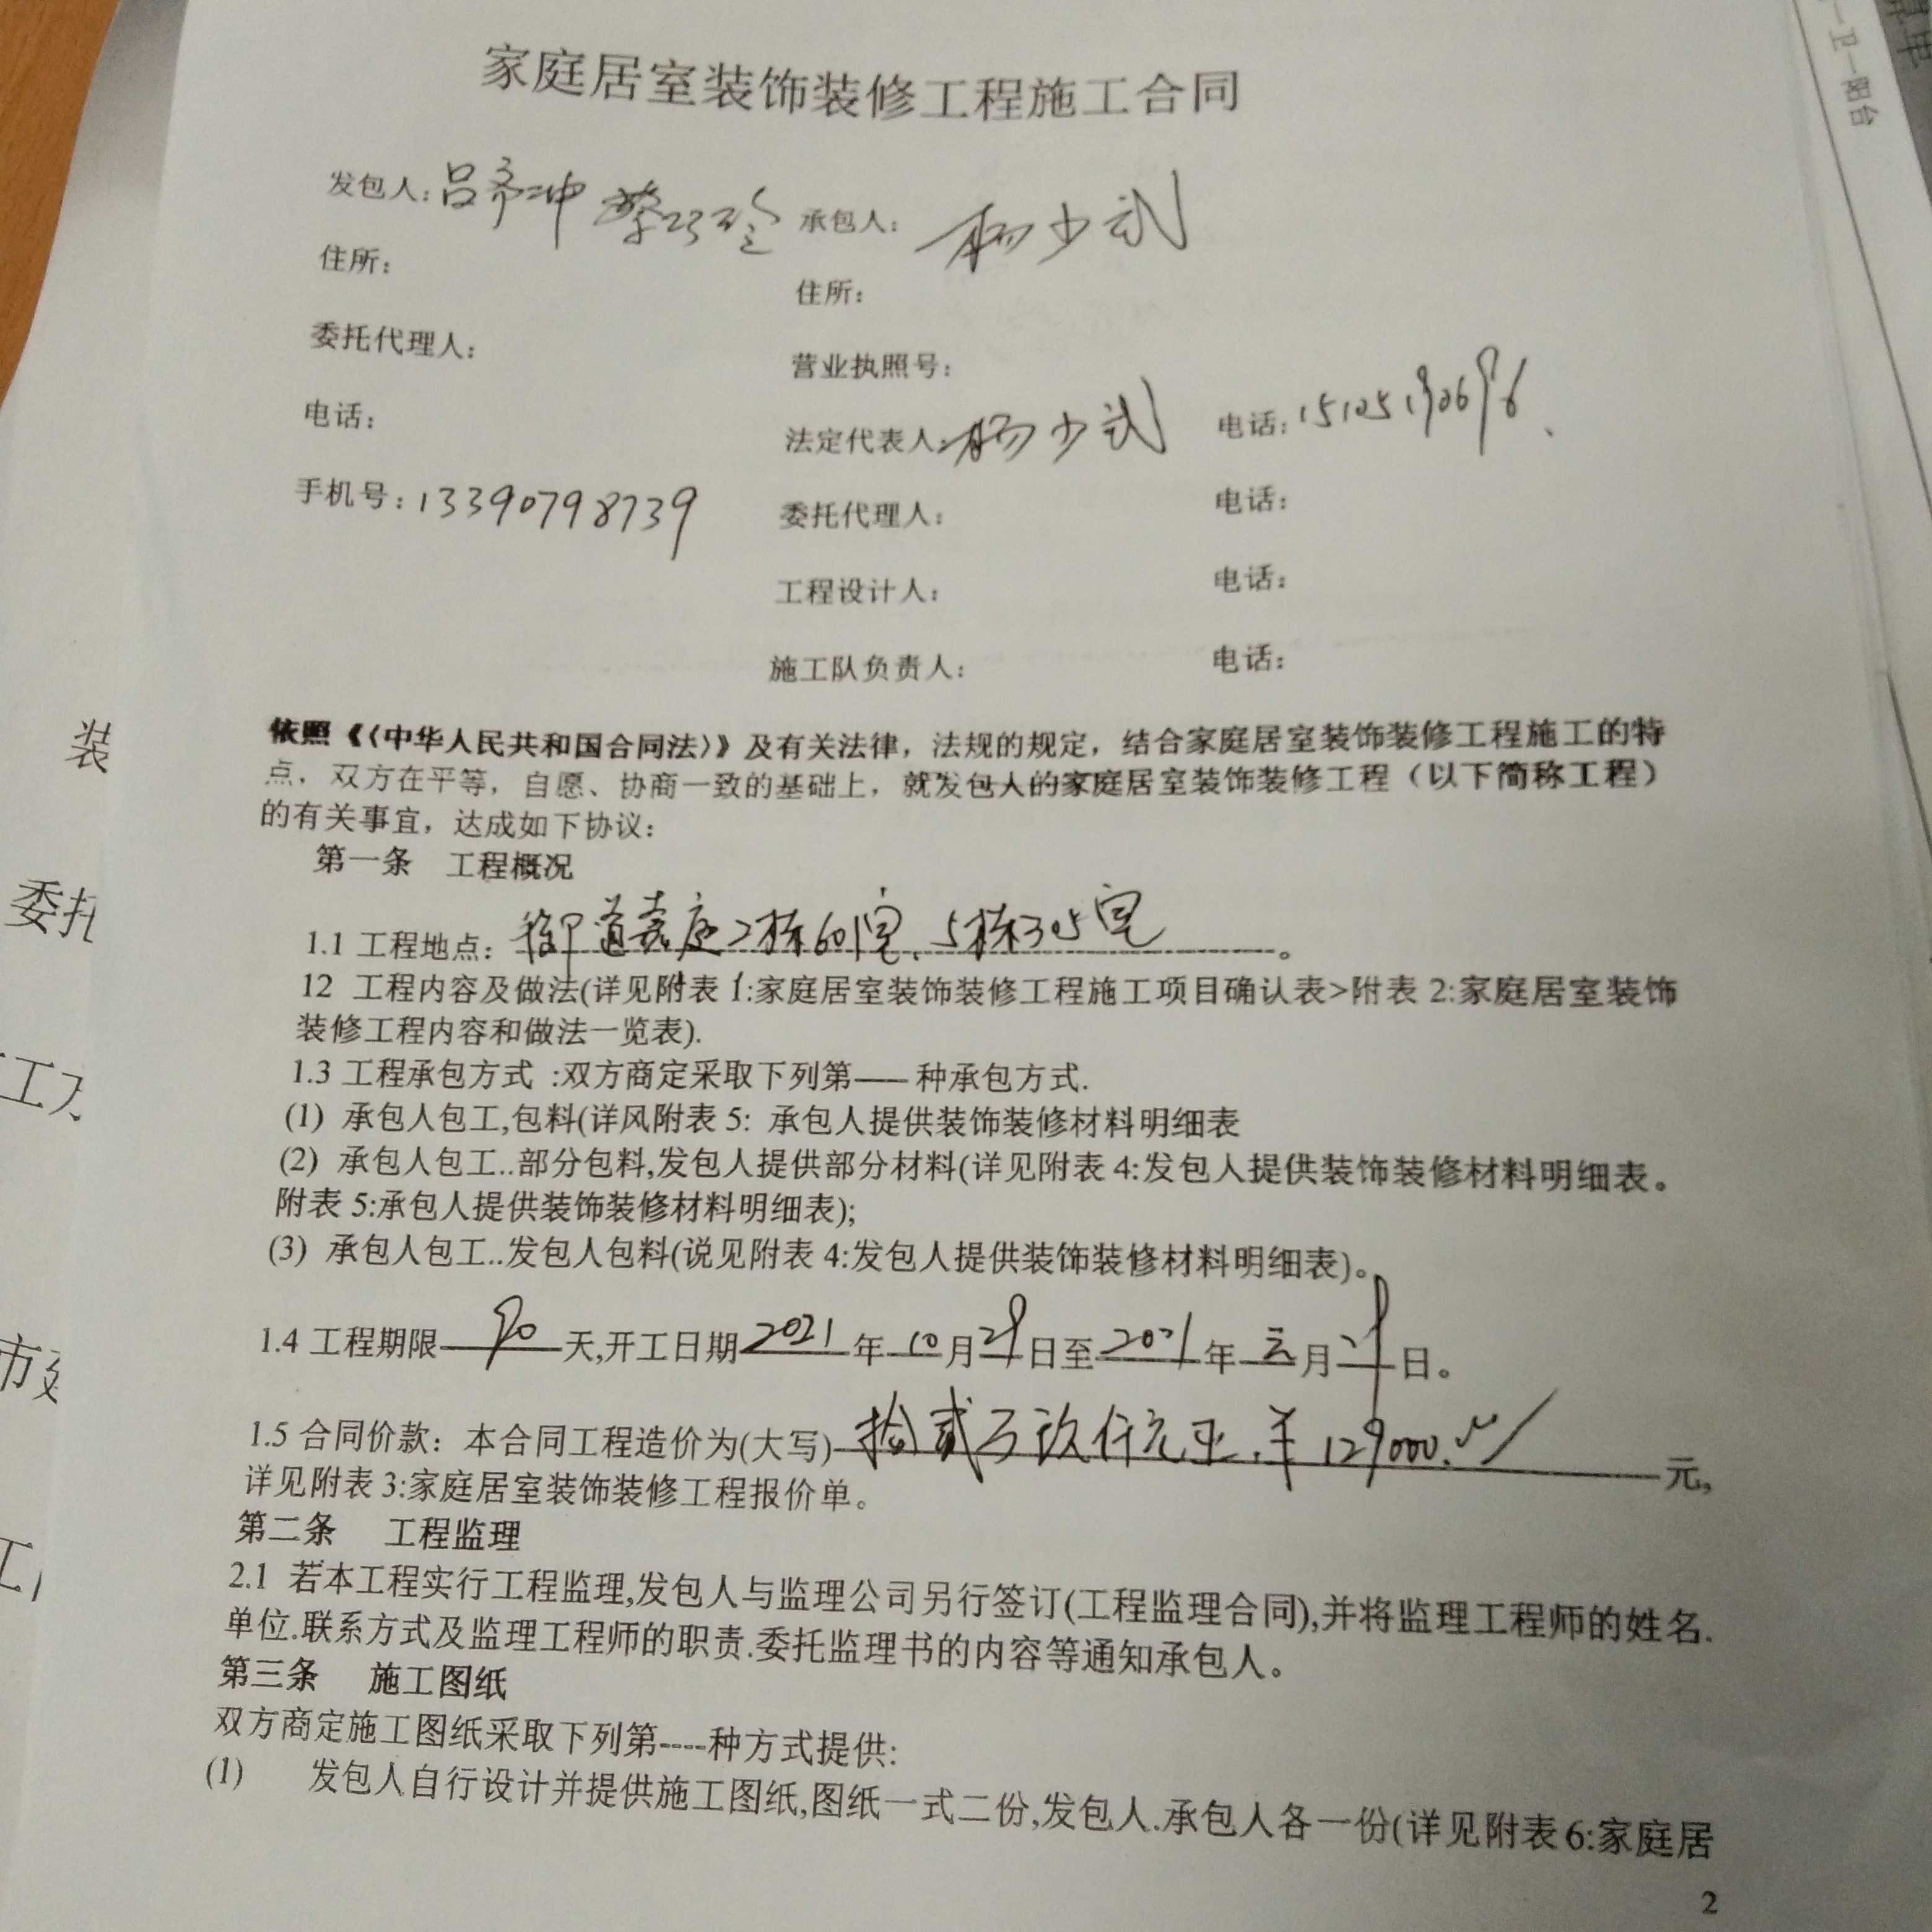 家庭居室装饰装修工程施工合同
发包人：吕齐坤 蔡巧玲 承包人： 杨少武
住所：
住所：
委托代理人：
营业执照号：
电话：
法定代表人：杨少武 电话：15105190696
手机号：13390798739
委托代理人： 电话：
工程设计人： 电话：
施工队负责人： 电话：
依照《〈中华人民共和国合同法〉》及有关法律，法规的规定，结合家庭居室装饰装修工程施工的特
点，双方在平等，自愿、协商一致的基础上，就发包人的家庭居室装饰装修工程（以下简称工程）
的有关事宜，达成如下协议：
第一条 工程概况
1.1 工程地点：御道嘉庭2栋601室、5栋305室。
12 工程内容及做法(详见附表 1:家庭居室装饰装修工程施工项目确认表>附表 2:家庭居室装饰
装修工程内容和做法一览表).
1.3 工程承包方式 :双方商定采取下列第—— 种承包方式.
(1) 承包人包工,包料(详风附表 5: 承包人提供装饰装修材料明细表
(2) 承包人包工..部分包料,发包人提供部分材料(详见附表 4:发包人提供装饰装修材料明细表。
附表 5:承包人提供装饰装修材料明细表);
(3) 承包人包工..发包人包料(说见附表 4:发包人提供装饰装修材料明细表)。
1.4 工程期限 90 天,开工日期 2021 年 10 月 29 日至 2021 年 元 月 29 日。
1.5 合同价款：本合同工程造价为(大写) 拾贰万玖仟元正.¥129000.00 元,
详见附表 3:家庭居室装饰装修工程报价单。
第二条 工程监理
2.1 若本工程实行工程监理,发包人与监理公司另行签订(工程监理合同),并将监理工程师的姓名.
单位.联系方式及监理工程师的职责.委托监理书的内容等通知承包人。
第三条 施工图纸
双方商定施工图纸采取下列第----种方式提供:
(1) 发包人自行设计并提供施工图纸,图纸一式二份,发包人.承包人各一份(详见附表 6:家庭居
2
装
委托
工
市
工
一卫一阳台